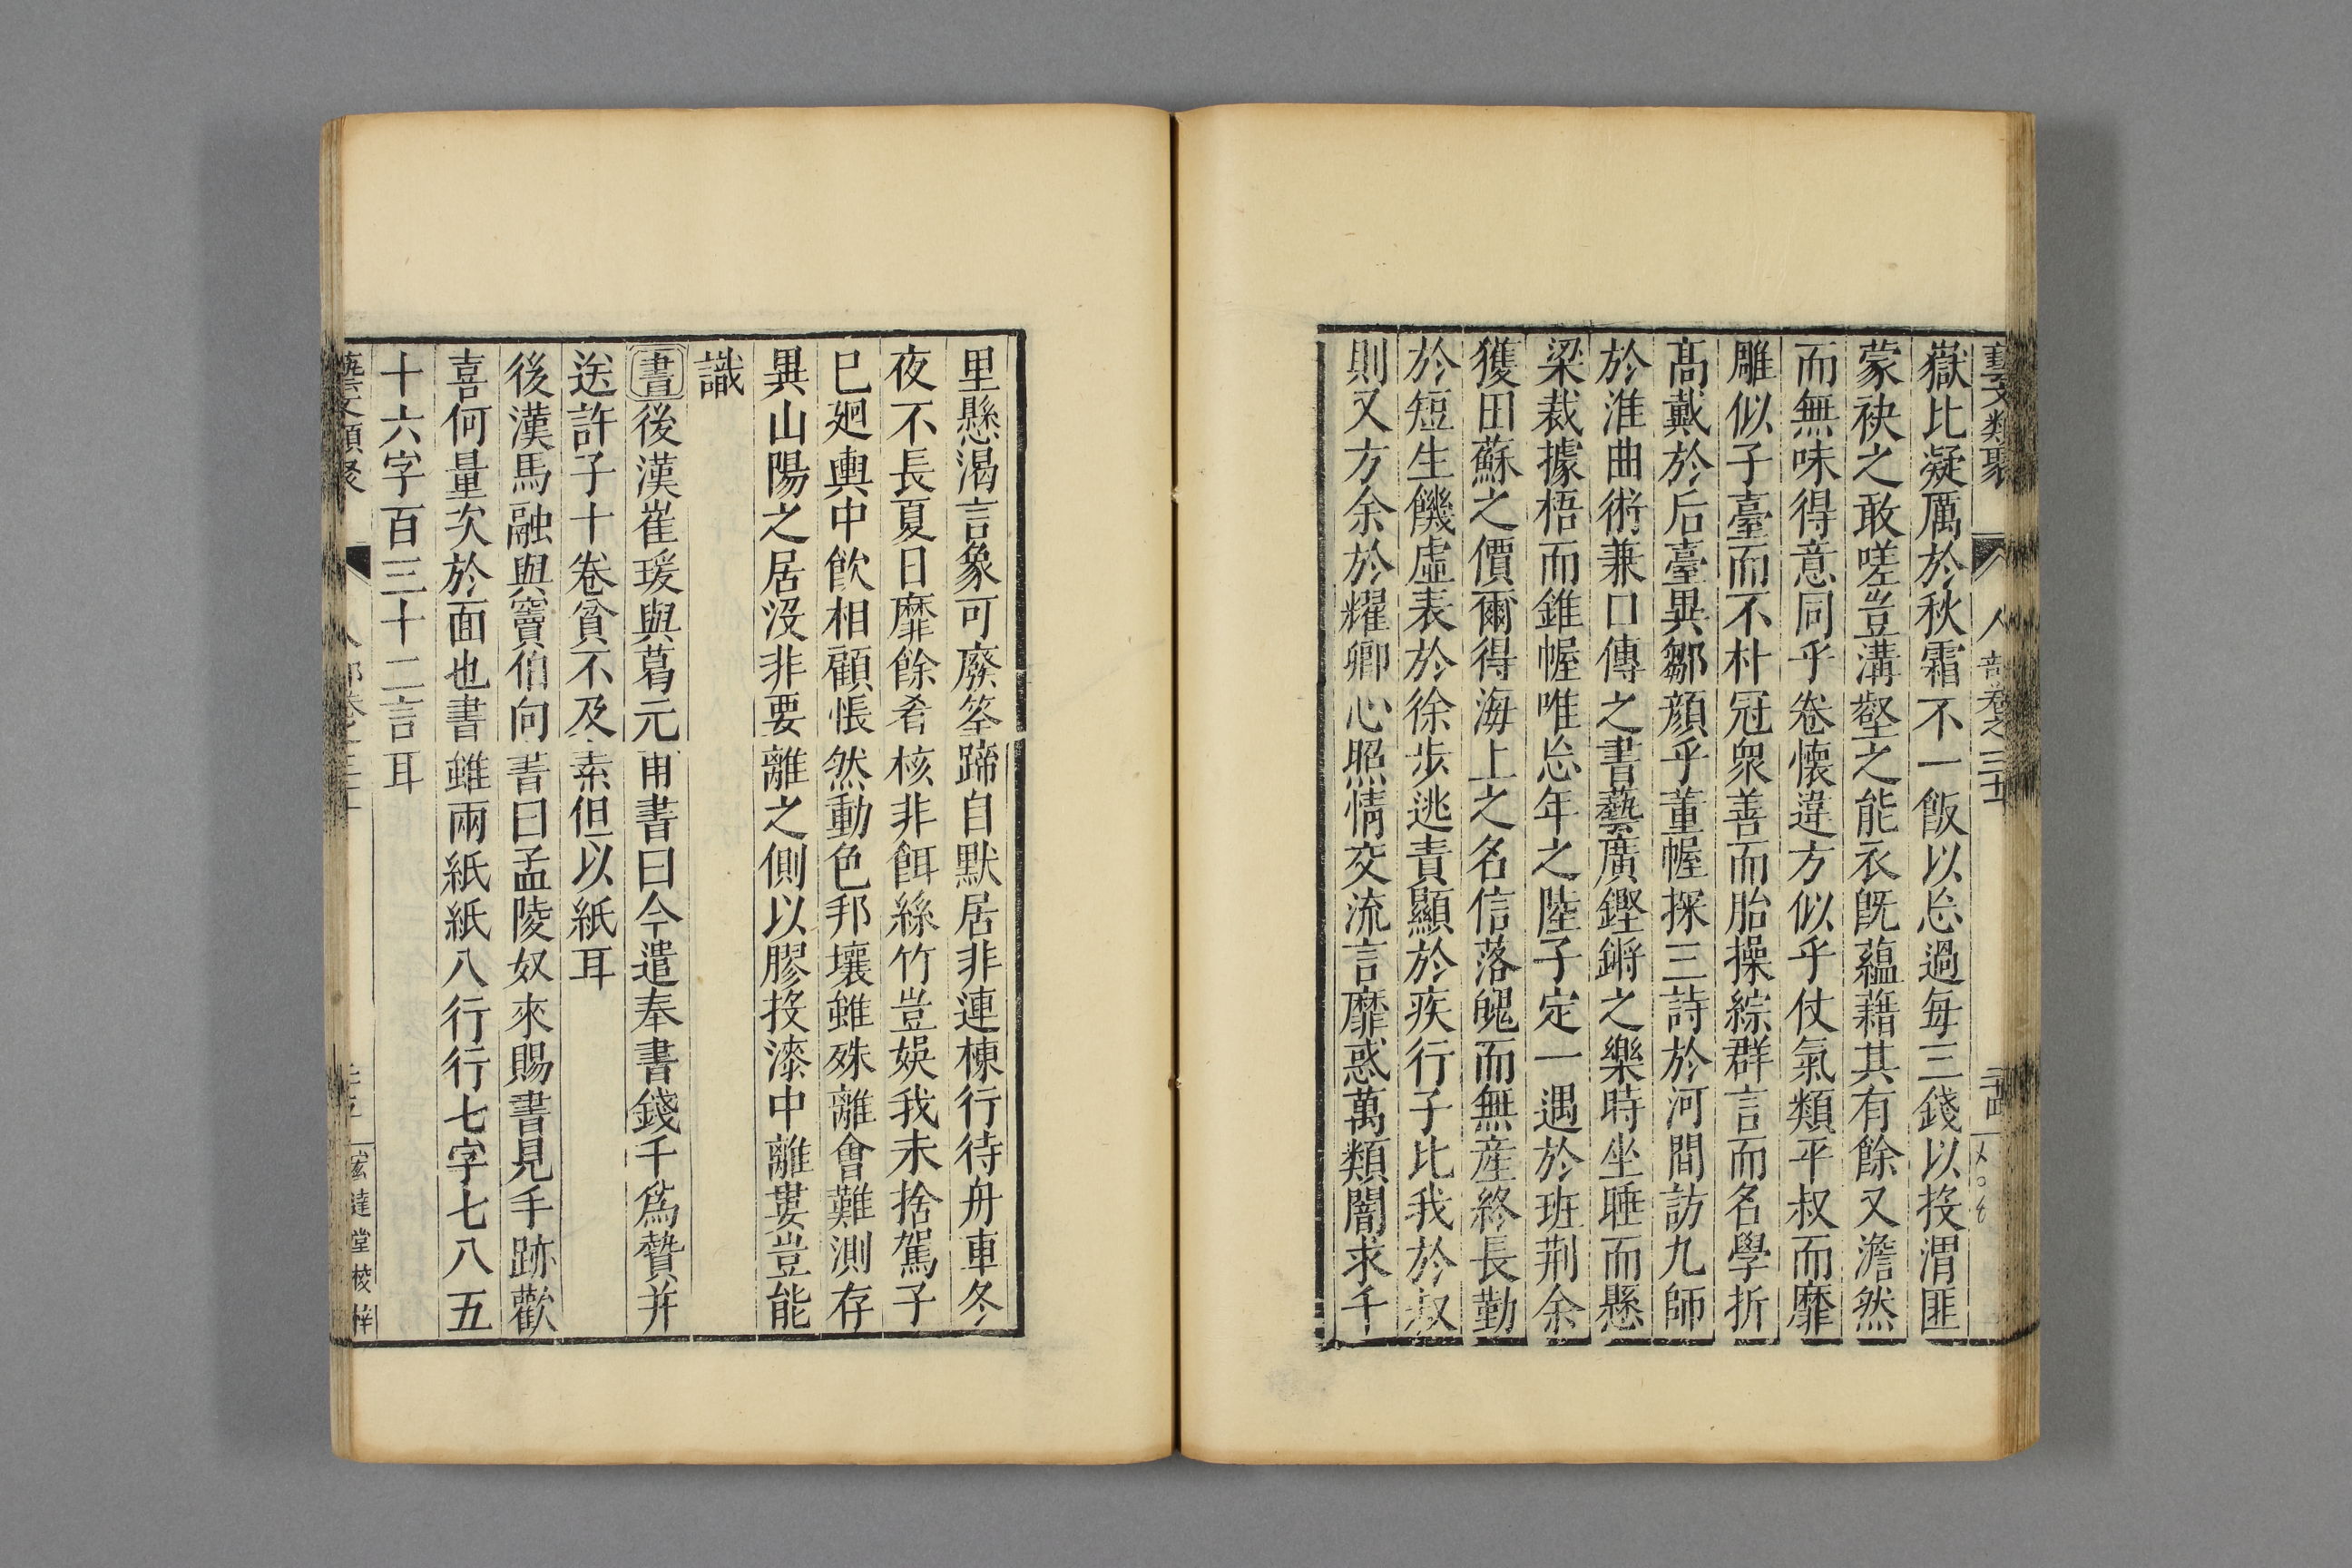 藝文類聚 人部卷之三十一 二十四
嶽比凝厲於秋霜不一飯以忘過每三錢以投渭匪
蒙袂之敢嗟豈溝壑之能衣旣蘊藉其有餘又澹然
而無味得意同乎卷懷違方似乎仗氣類平叔而靡
雕似子臺而不朴冠衆善而胎操綜群言而名學折
髙戴於后臺異鄒顔乎董幄探三詩於河間訪九師
於淮曲術兼口傳之書藝廣鏗鏘之樂時坐睡而懸
梁裁據梧而錐幄唯忘年之陸子定一遇於班荆余
獲田蘇之價爾得海上之名信落魄而無産終長勤
於短生饑虛表於徐步逃責顯於疾行子比我於叔
則又方余於耀卿心照情交流言靡惑萬類闇求千
里懸渴言象可廢筌蹄自默居非連棟行待舟車冬
夜不長夏日靡餘肴核非餌絲竹豈娛我未捨駕子
巳𢌞輿中飮相顧悵然動色邦壤雖殊離會難測存
異山陽之居沒非要離之側以膠投漆中離婁豈能
識
書後漢崔瑗與葛元甫書曰今遣奉書錢千爲贄并
送許子十卷貧不及素但以紙耳
後漢馬融與竇伯向書曰孟陵奴來賜書見手跡歡
喜何量次於面也書雖兩紙紙八行行七字七八五
十六字百三十二言耳
藝文類聚 人部卷之三十一 宏達堂校梓